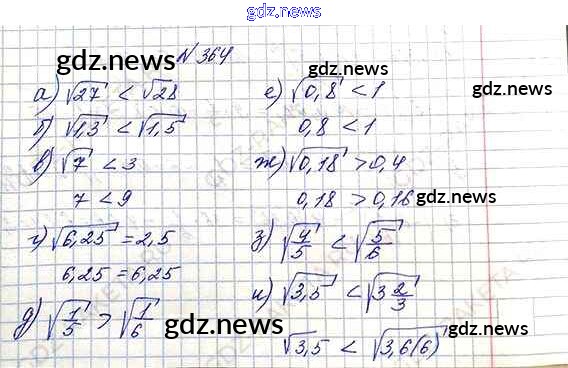 gdz.news
gdz.news
№ 364
а) √27 < √28
б) √1,3 < √1,5
в) √7 < 3
7 < 9
г) √6,25 = 2,5
6,25 = 6,25
д) √1/5 > √1/6
gdz.news
е) √0,8 < 1
gdz.news
0,8 < 1
ж) √0,18 > 0,4
0,18 > 0,16
gdz.news
з) √4/5 < √5/6
и) √3,5 < √3 2/3
√3,5 < √3,6(6)
gdz.news